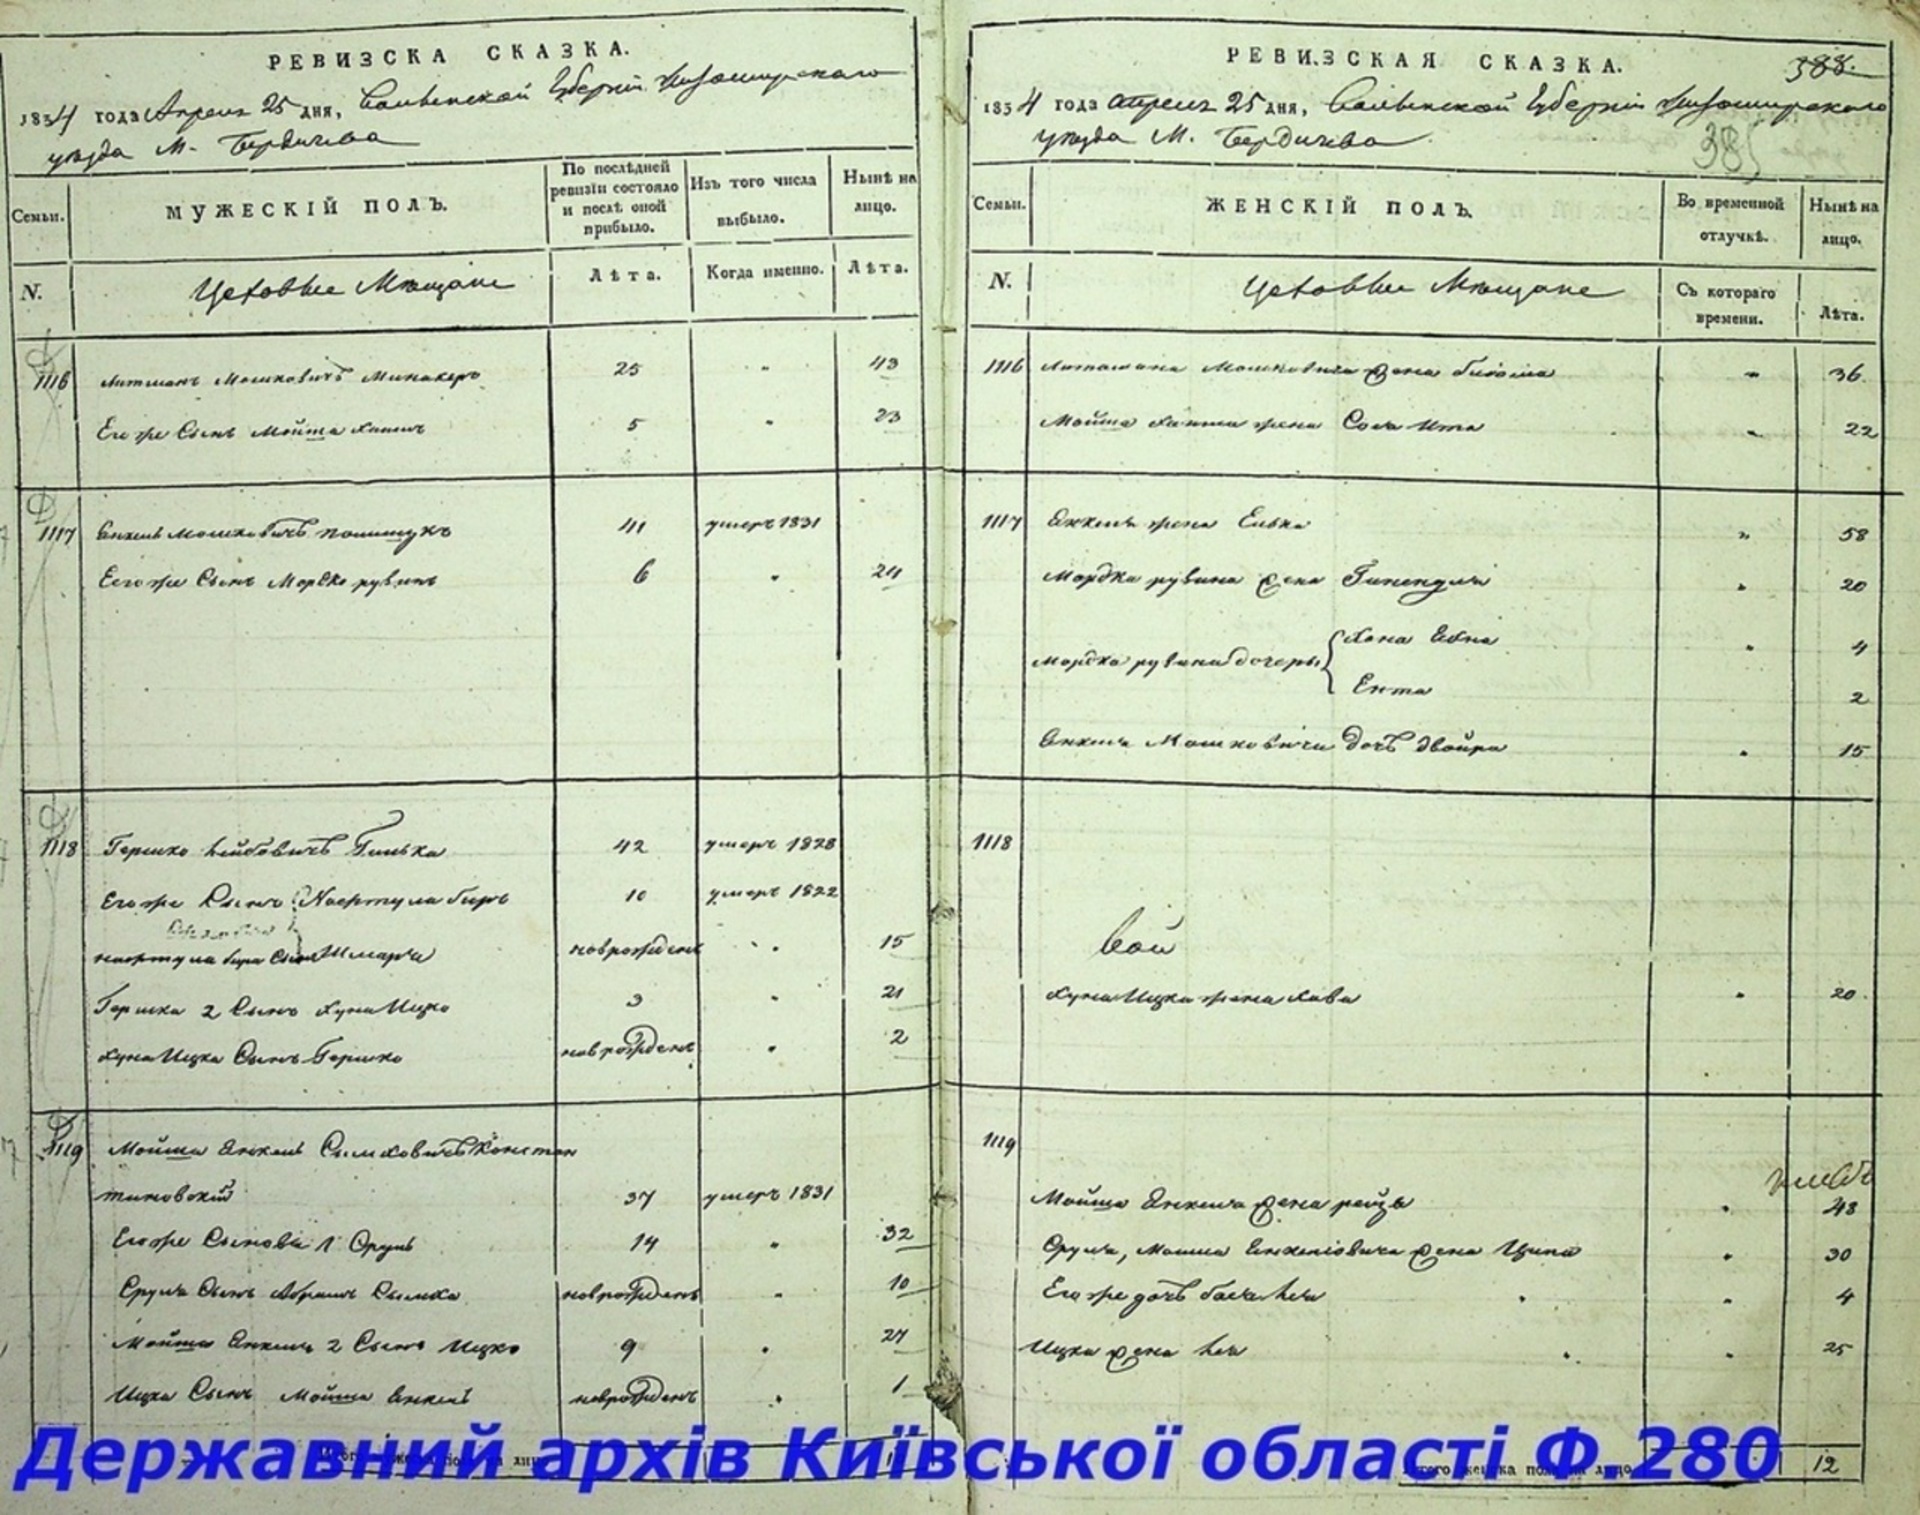 РЕВИЗСКА СКАЗКА.
1834 года Апреля 25 дня, Волынской Губернiи Житомирского
уезда М. Бердичева
Семьи.
МУЖЕСКIЙ ПОЛЪ.
По послѣдней ревизiи состояло и послѣ оной прибыло.
Изъ того числа выбыло.
Нынѣ на лицо.
N.
Цеховые Мещане
Лѣта.
Когда именно.
Лѣта.
1116 Литманъ Мошковичъ 25 " 43
Его же Сынъ Мойша Хаимъ 5 " 23
1117 Янкель Мошковичъ Полищукъ 41 умеръ 1831
Его же Сынъ Мордко рувинъ 6 " 24
1118 Гершко Лейбовичъ 42 умеръ 1828
Его же Сынъ 10 умеръ 1822
новорожденъ " 15
Гершка 2 Сынъ Хуна Ицко 3 " 21
Хуна Ицка Сынъ Гершко новорожденъ " 2
1119 Мойша Янкель Сымховичъ Констан
тиновскiй 37 умеръ 1831
Его же Сыновья 1 Сруль 14 " 32
Сруля Сынъ Абрамъ Сымха новорожденъ " 10
Мойша Янкеля 2 Сынъ Ицко 9 " 27
Ицка Сынъ Мойша Янкель новорожденъ " 1
РЕВИЗСКАЯ СКАЗКА.
388.
385
1834 года апреля 25 дня, Волынской Губернiи Житомирского
уезда М. Бердичева
Семьи.
ЖЕНСКIЙ ПОЛЪ.
Во временной отлучкѣ.
Нынѣ на лицо.
N.
Цеховые Мещане
Съ котораго времени.
Лѣта.
1116 Литмана Мошковича жена " 36
Мойша Хаима жена Сося Ита " 22
1117 Янкеля жена " 58
Мордка рувина жена " 20
Мордка рувина дочеры Хана " 4
Ента 2
Янкеля Мошковича дочь двойра " 15
1118
Хуна Ицка жена Хава " 20
1119
Мойша Янкеля жена рейзя " 48
Сруля, Мойша Янкелевича жена Ципа " 30
Его же дочь бася Лея " 4
Ицка жена Лея " 25
Итого женска пола на лицо 12
Державний архів Київської області Ф.280